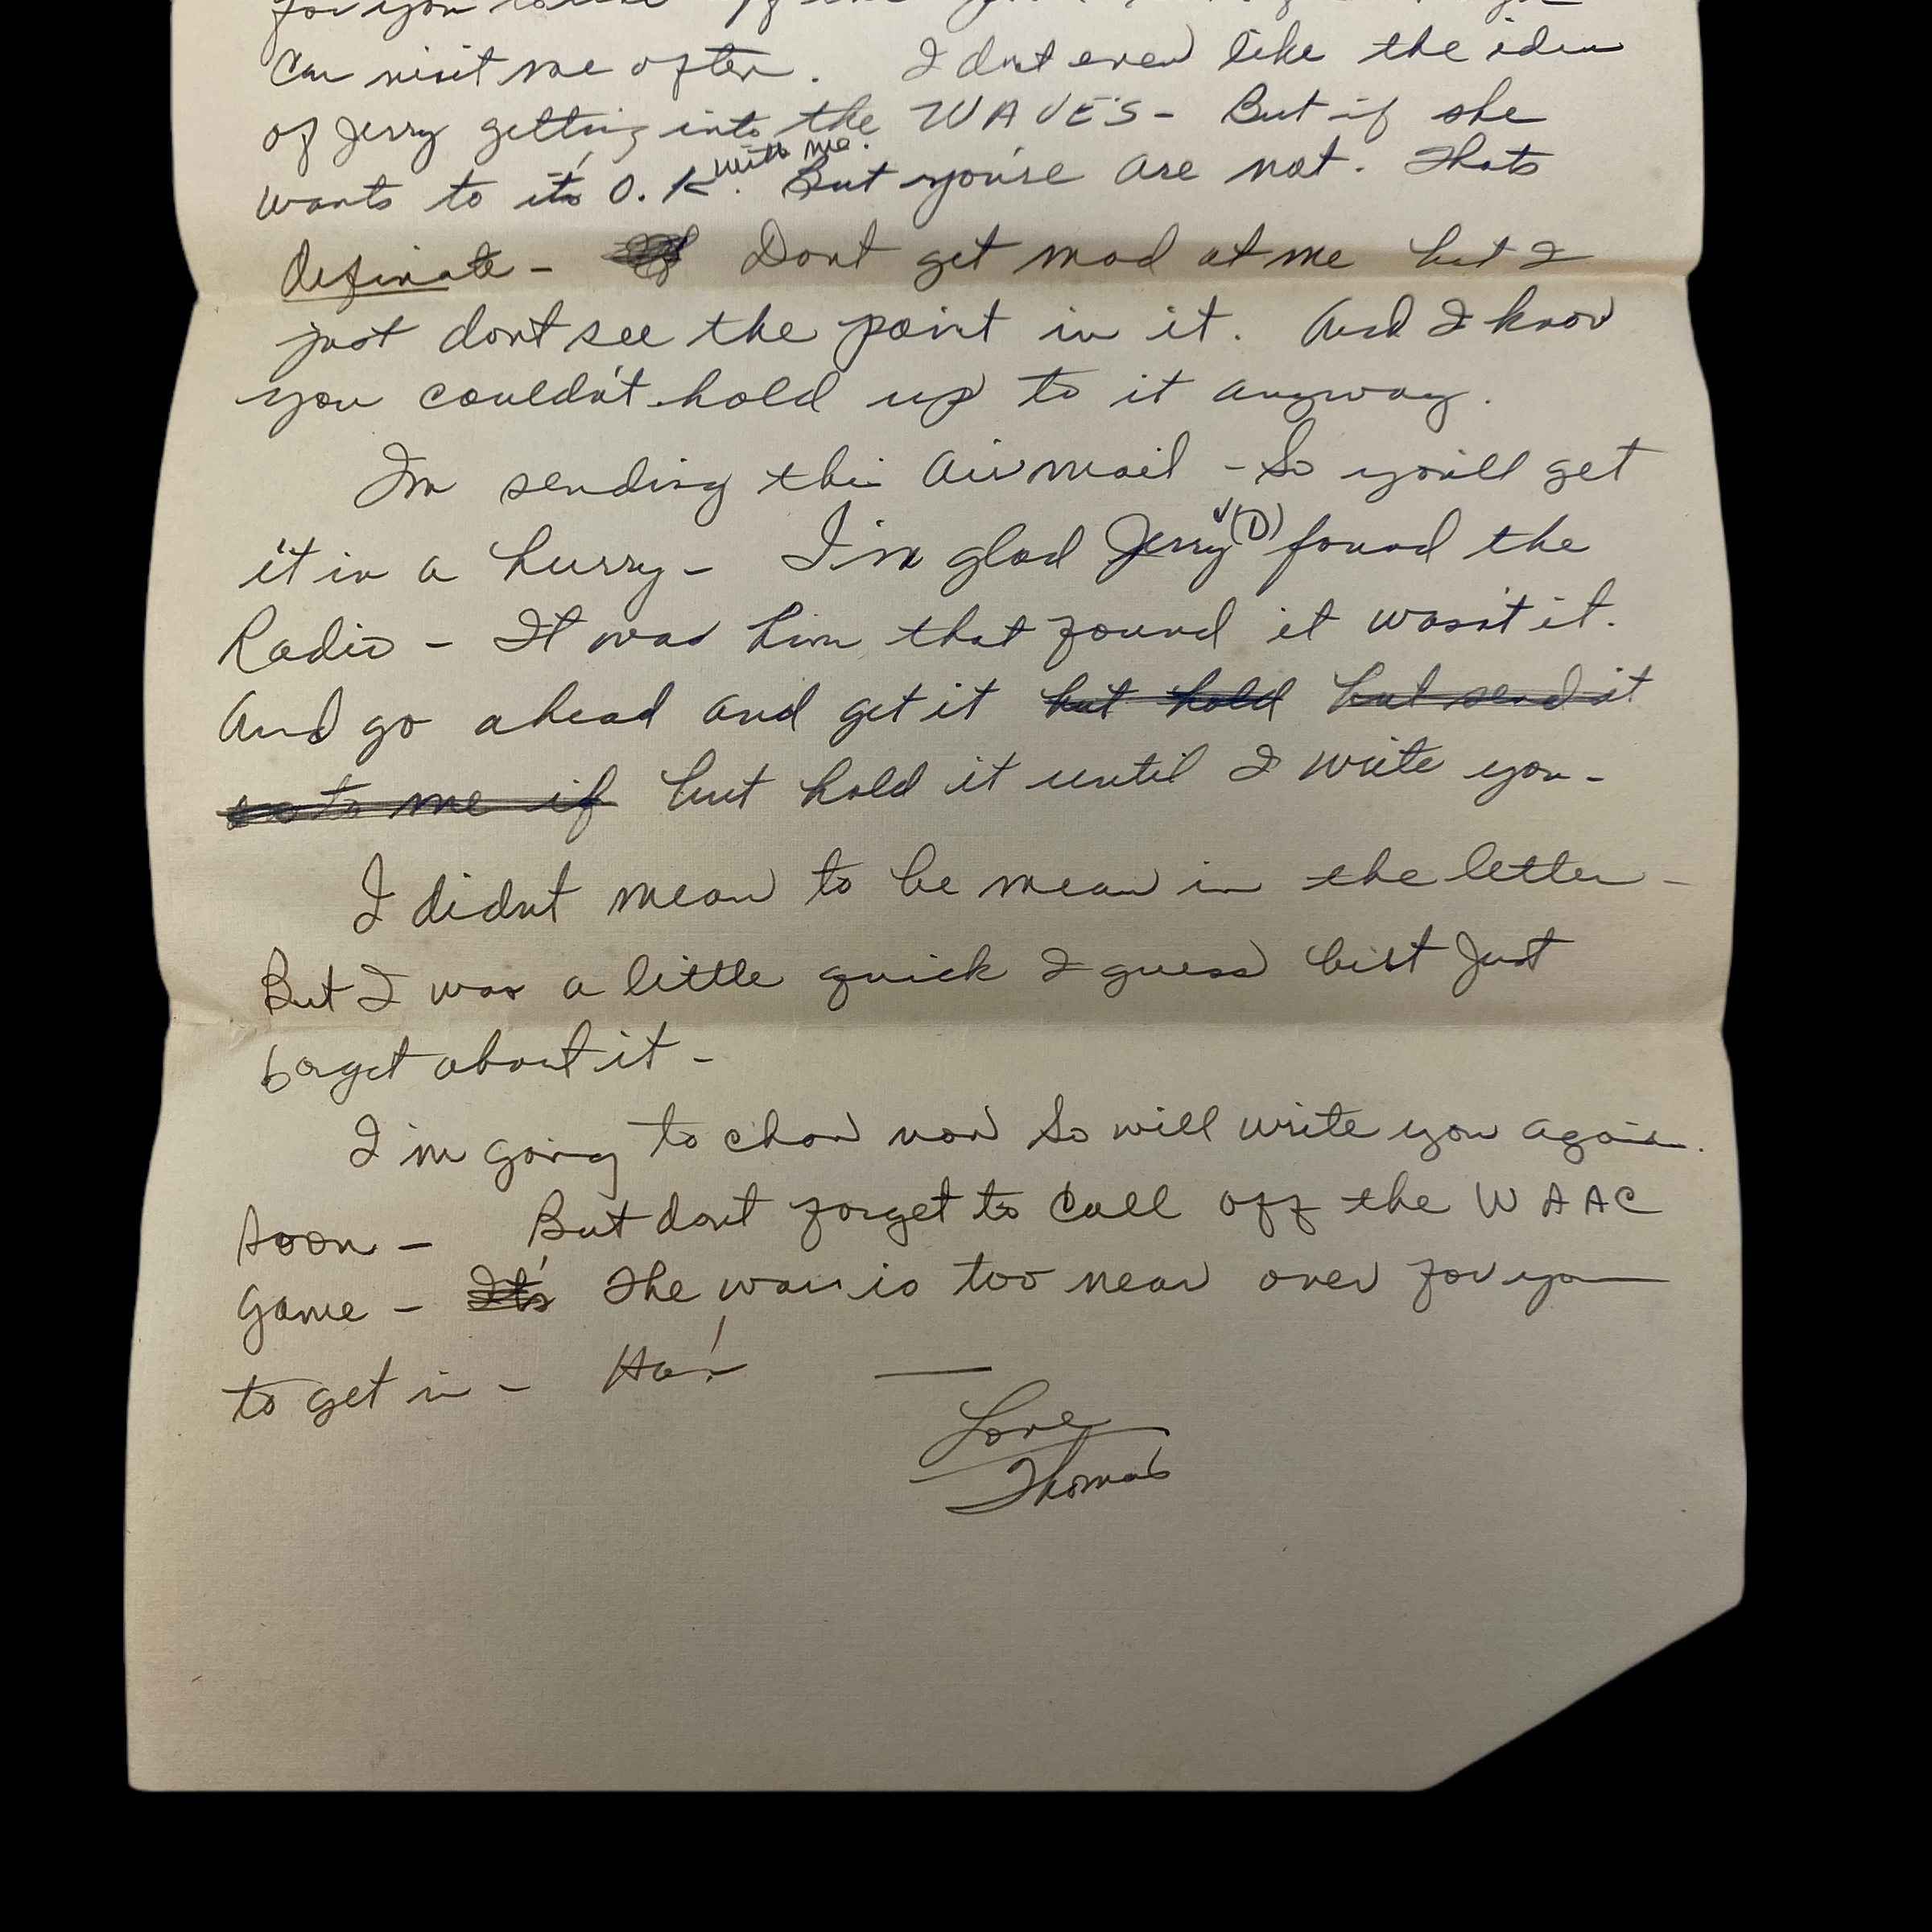 for you
can visit me often. I dont even like the idea
of Jerry getting into the WAVES - But if she
wants to it's O.K. with me. But you're are not. Thats
definate - Dont get mad at me but I
just dont see the point in it. And I know
you couldn't hold up to it anyway.
Im sending this Airmail - So you'll get
it in a hurry - I'm glad Jerry (D) found the
Radio - It was him that found it wasn't it.
And go ahead and get it but hold but send it
to me if but hold it until I write you -
I didnt mean to be mean in the letter -
But I was a little quick I guess but Just
forget about it -
I'm going to chow now So will write you again.
soon - But dont forget to Call off the WAAC
Game - It's The war is too near over for you
to get in - Ha!
Love
Thomas